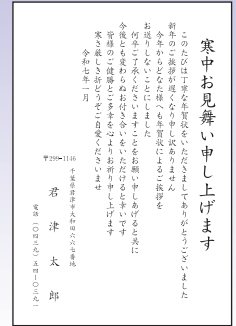 寒中お見舞い申し上げます
このたびは丁寧な年賀状をいただきましてありがとうございました
新年のご挨拶が遅くなり申し訳ありません
今年からどなた様へも年賀状によるご挨拶を
お送りしないことにしました
何卒ご了承くださいますことをお願い申しあげると共に
今後とも変わらぬお付き合いをいただけると幸いです
皆様のご健勝とご多幸を心よりお祈り申し上げます
寒さ厳しき折どうぞご自愛くださいませ
令和七年一月
〒299-1146
千葉県君津市大和田六六七番地
君津太郎
電話(〇四三九)五四-〇三九一